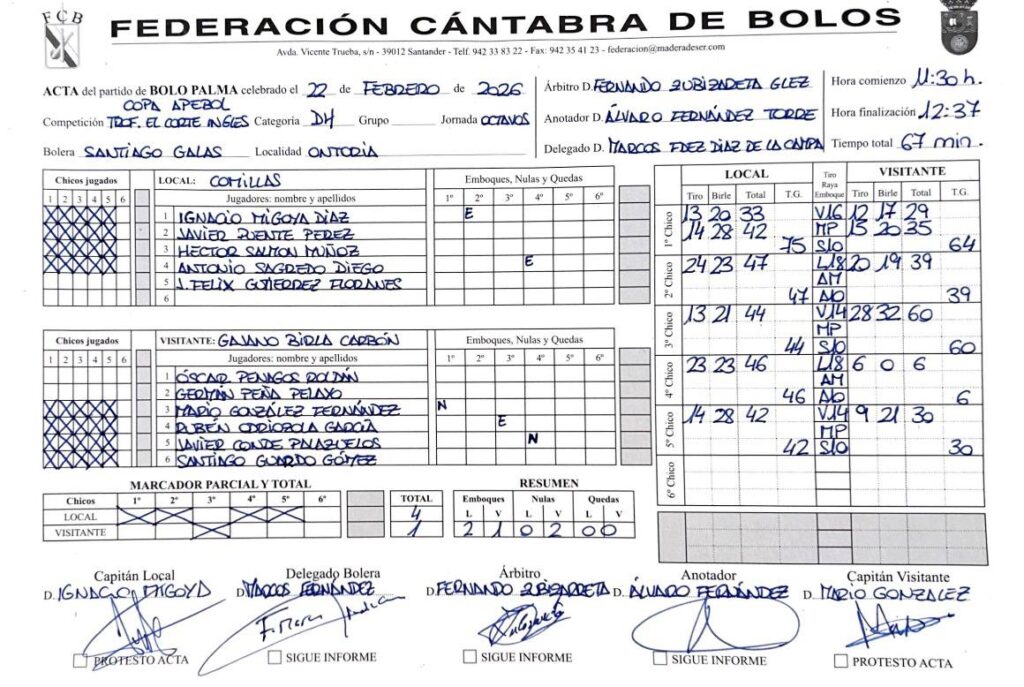 FCB
FEDERACIÓN CÁNTABRA DE BOLOS
Avda. Vicente Trueba, s/n - 39012 Santander - Telf. 942 33 83 22 - Fax: 942 35 41 23 - federacion@maderadeser.com
ACTA del partido de BOLO PALMA celebrado el 22 de FEBRERO de 2026
COPA APEBOL
Competición TROF. EL CORTE INGLES Categoria DH Grupo Jornada OCTAVOS
Bolera SANTIAGO GALAS Localidad ONTORIA
Árbitro D. FERNANDO ZUBIZARETA GLEZ
Anotador D. ÁLVARO FERNÁNDEZ TORRE
Delegado D. MARCOS FDEZ DIAZ DE LA CAMPA
Hora comienzo 11:30 h.
Hora finalización 12:37
Tiempo total 67 min.
Chicos jugados LOCAL: COMILLAS Emboques, Nulas y Quedas
1 2 3 4 5 6 Jugadores: nombre y apellidos 1º 2º 3º 4º 5º 6º
1 IGNACIO MIGOYA DIAZ E
2 JAVIER PUENTE PEREZ
3 HECTOR SALMON MUÑOZ
4 ANTONIO SAGREDO DIEGO E
5 J. FELIX GUTIERREZ FLORANES
6
Chicos jugados VISITANTE: GAJANO BIRLA CARBÓN Emboques, Nulas y Quedas
1 2 3 4 5 6 Jugadores: nombre y apellidos 1º 2º 3º 4º 5º 6º
1 ÓSCAR PENAGOS ROLDÁN
2 GERMÁN PEÑA PELAYO
3 MARIO GONZÁLEZ FERNÁNDEZ N
4 RUBÉN ODRIOZOLA GARCÍA E
5 JAVIER CONDE PALAZUELOS N
6 SANTIAGO GUARDO GÓMEZ
MARCADOR PARCIAL Y TOTAL
Chicos 1º 2º 3º 4º 5º 6º TOTAL
LOCAL X X X X 4
VISITANTE X 1
RESUMEN
Emboques Nulas Quedas
L V L V L V
2 1 0 2 0 0
LOCAL Tiro Raya Emboque VISITANTE
Tiro Birle Total T.G. Tiro Birle Total T.G.
1º Chico
13 20 33 V16 12 17 29
14 28 42 MP 15 20 35
75 S/O 64
2º Chico
24 23 47 L18 20 19 39
AM
47 Ab 39
3º Chico
13 21 44 V14 28 32 60
MP
44 S/O 60
4º Chico
23 23 46 L18 6 0 6
AM
46 Ab 6
5º Chico
14 28 42 V14 9 21 30
MP
42 S/O 30
6º Chico
Capitán Local
D. IGNACIO MIGOYA
PROTESTO ACTA
Delegado Bolera
D. MARCOS FERNÁNDEZ
SIGUE INFORME
Árbitro
D. FERNANDO ZUBIZARETA
SIGUE INFORME
Anotador
D. ÁLVARO FERNÁNDEZ
SIGUE INFORME
Capitán Visitante
D. MARIO GONZALEZ
PROTESTO ACTA